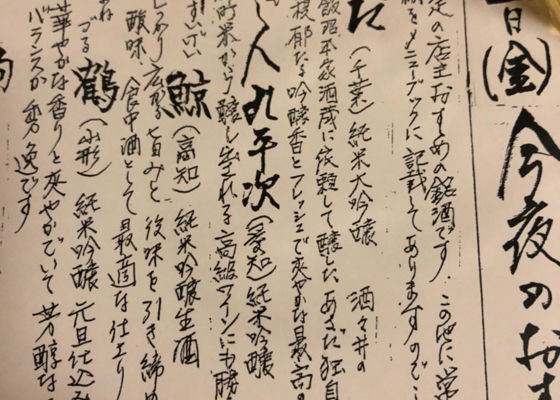 日(金)今夜のおす
定の店主おすすめの銘酒です。この他に常
メニューブックに記載してありますので
た(千葉)純米大吟醸 酒々井の
飯沼本家酒蔵に依頼して醸した、あさだ独自
郁な吟醸香とフレッシュで爽やかな最高の
し人九平次(愛知)純米吟醸
町米から醸し出される高級ワインにも勝
すいげい
鯨(高知)純米吟醸生酒
しっかり広がる旨みと後味を引き締め
酸味 食中酒として最適な仕上り
づる
鶴(山形)純米吟醸 元旦仕込み
華やかな香りと爽やかでいて芳醇な
バランスが秀逸です